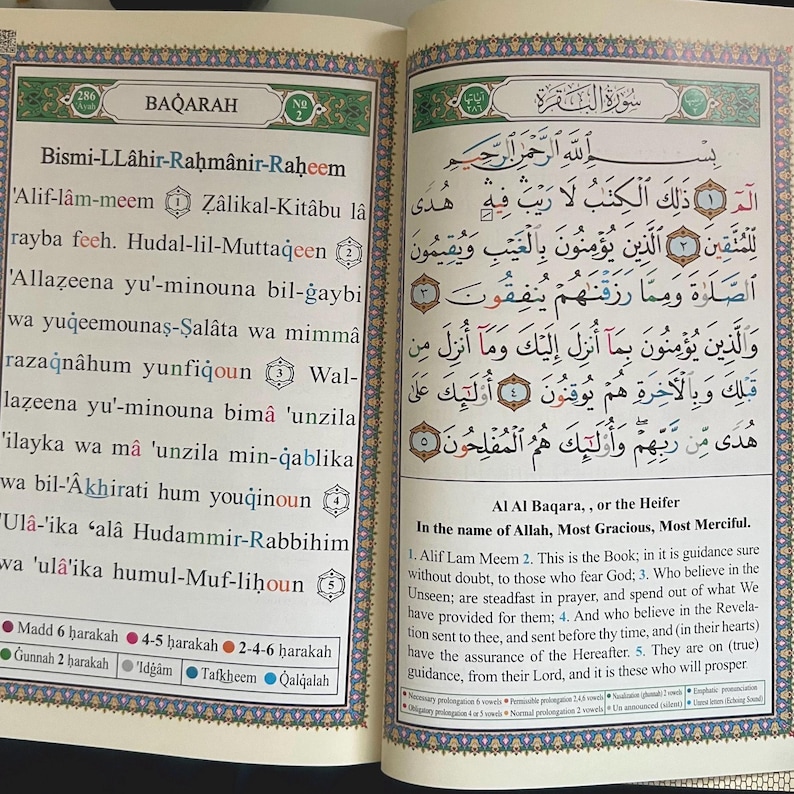 286
Ayah
BAQ̇ARAH
No
2
Bismi-LLâhir-Raḥmânir-Raḥeem
'Alif-lâm-meem 1 Ẓâlikal-Kitâbu lâ
rayba feeh. Hudal-lil-Muttaq̇een 2
'Allaẓeena yu'-minouna bil-ġaybi
wa yuq̇eemounaṣ-Ṣalâta wa mimmâ
razaq̇nâhum yunfiq̇oun 3 Wal-
laẓeena yu'-minouna bimâ 'unzila
'ilayka wa mâ 'unzila min-q̇ablika
wa bil-'Âkhirati hum youq̇inoun 4
'Ulâ-'ika ‘alâ Hudammir-Rabbihim
wa 'ulâ'ika humul-Muf-liḥoun 5
Madd 6 ḥarakah 4-5 ḥarakah 2-4-6 ḥarakah
Ġunnah 2 ḥarakah 'Idġâm Tafkheem Q̇alq̇alah
آياتها
٢٨٦
سُورَةُ البَقَرَة
بِسْمِ ٱللَّهِ ٱلرَّحْمَٰنِ ٱلرَّحِيمِ
الٓمٓ ١ ذَٰلِكَ ٱلْكِتَٰبُ لَا رَيْبَ ۛ فِيهِ ۛ هُدًى
لِّلْمُتَّقِينَ ٢ ٱلَّذِينَ يُؤْمِنُونَ بِٱلْغَيْبِ وَيُقِيمُونَ
ٱلصَّلَوٰةَ وَمِمَّا رَزَقْنَٰهُمْ يُنفِقُونَ ٣
وَٱلَّذِينَ يُؤْمِنُونَ بِمَآ أُنزِلَ إِلَيْكَ وَمَآ أُنزِلَ مِن
قَبْلِكَ وَبِٱلْءَاخِرَةِ هُمْ يُوقِنُونَ ٤ أُو۟لَٰٓئِكَ عَلَىٰ
هُدًى مِّن رَّبِّهِمْ ۖ وَأُو۟لَٰٓئِكَ هُمُ ٱلْمُفْلِحُونَ ٥
Al Al Baqara, , or the Heifer
In the name of Allah, Most Gracious, Most Merciful.
1. Alif Lam Meem 2. This is the Book; in it is guidance sure
without doubt, to those who fear God; 3. Who believe in the
Unseen; are steadfast in prayer, and spend out of what We
have provided for them; 4. And who believe in the Revela-
tion sent to thee, and sent before thy time, and (in their hearts)
have the assurance of the Hereafter. 5. They are on (true)
guidance, from their Lord, and it is these who will prosper.
Necessary prolongation 6 vowels Permissible prolongation 2,4,6 vowels Nasalization (ghunnah) 2 vowels Emphatic pronunciation
Obligatory prolongation 4 or 5 vowels Normal prolongation 2 vowels Un announced (silent) Unrest letters (Echoing Sound)